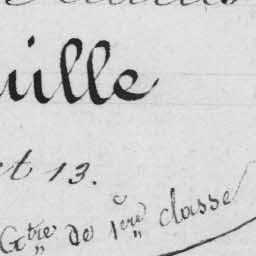 uille
et 13.
Gtre de 1ère classe